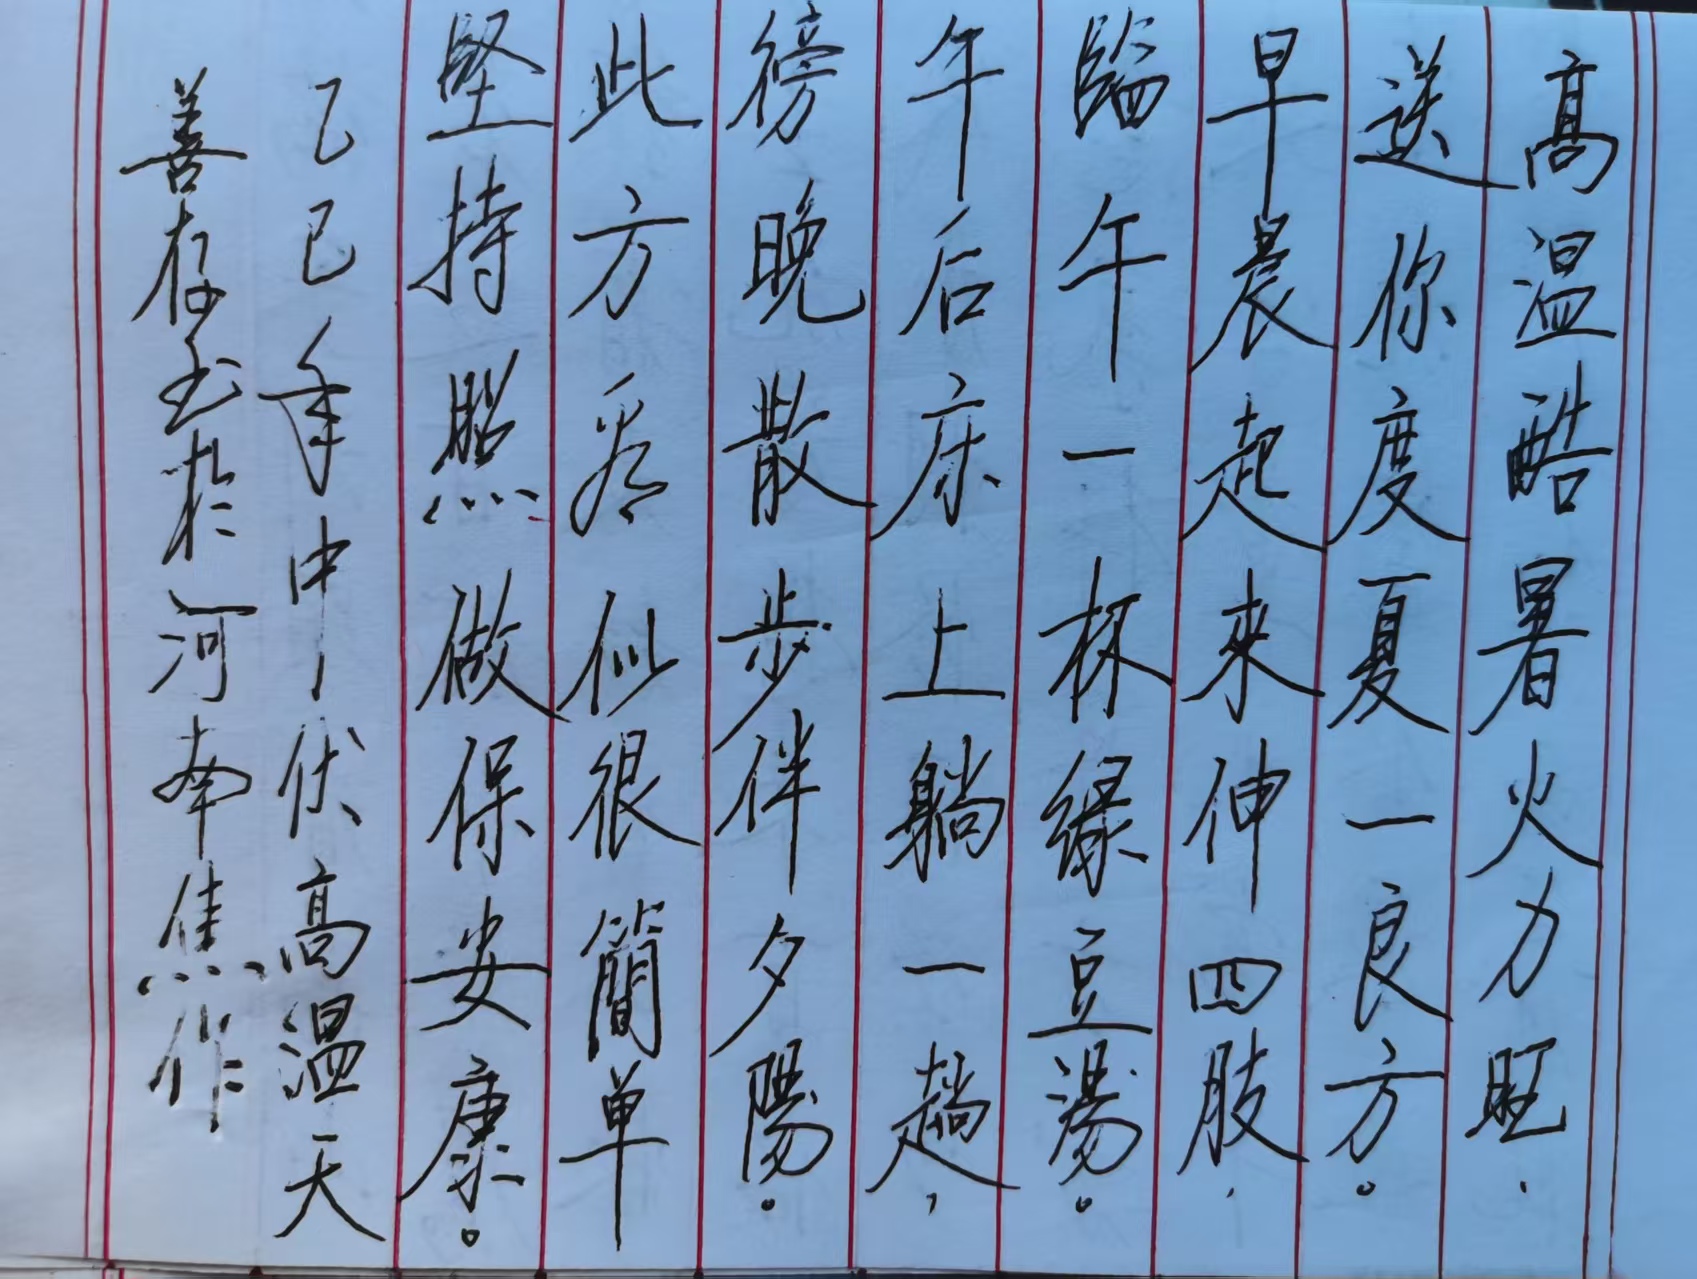 高温酷暑火力旺，
送你度夏一良方。
早晨起来伸四肢，
臨午一杯綠豆湯。
午后床上躺一趟，
傍晚散步伴夕陽。
此方看似很簡单
堅持照做保安康。
乙巳年中伏高温天
善存书於河南焦作